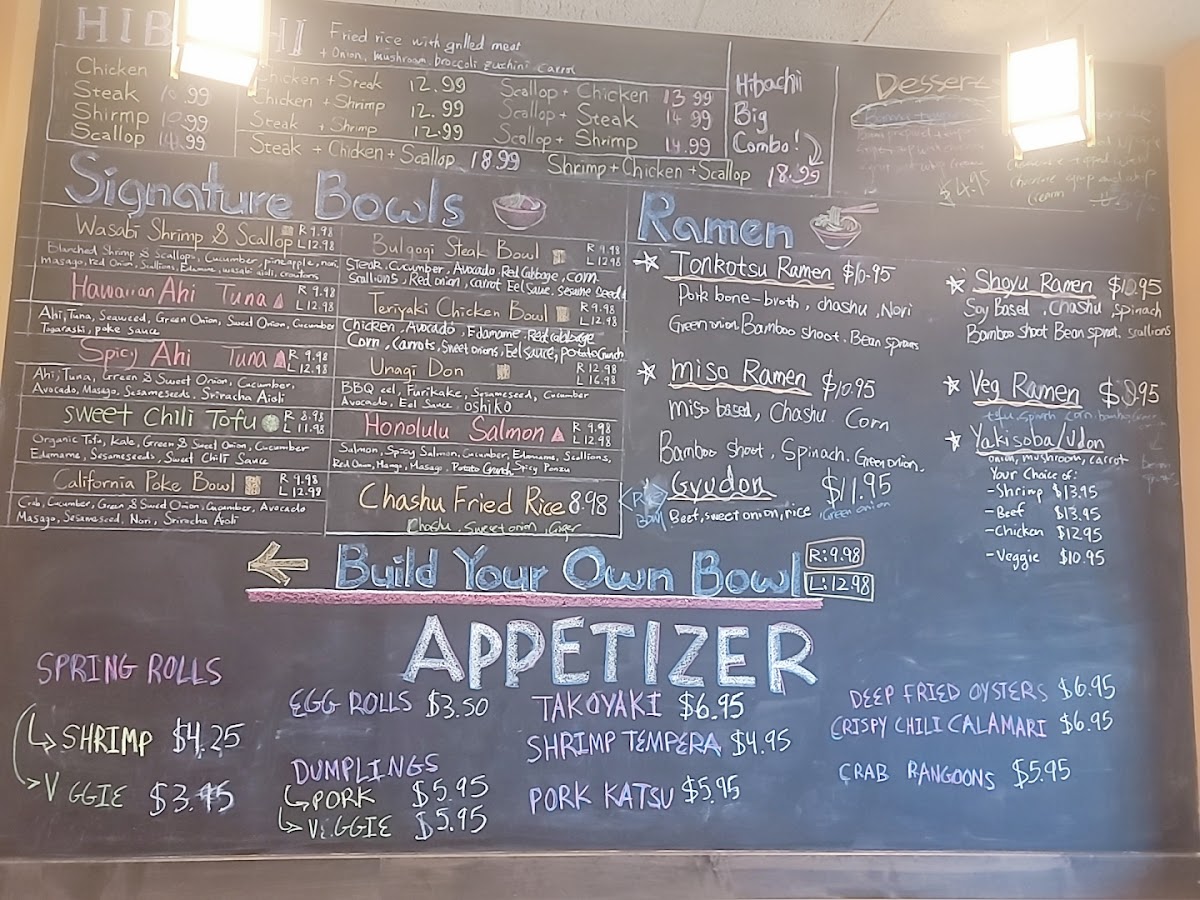 Fried rice with grilled meat
+ Onion, mushroom, broccoli zucchini carrot
Chicken
Steak 10.99
Shirmp 10.99
Scallop
Chicken + Steak 12.99
Chicken + Shrimp 12.99
Steak + Shrimp 12.99
Scallop + Chicken 13.99
Scallop + Steak 14.99
Scallop + Shrimp 14.99
Steak + Chicken + Scallop 18.99
Shrimp + Chicken + Scallop 18.99
Hibachi
Big
Combo!
Desserts
$4.95
Signature Bowls
Wasabi Shrimp & Scallop R 9.98
L 12.98
Blanched Shrimp & Scallops, Cucumber, pineapple, nori,
masago, red Onion, Scallions, Edamame, wasabi aioli, croutons
Hawaiian Ahi Tuna R 9.98
L 12.98
Ahi, Tuna, Seaweed, Green Onion, Sweet Onion, Cucumber
Togarashi, poke sauce
Spicy Ahi Tuna R 9.98
L 12.98
Ahi, Tuna, Green & Sweet Onion, Cucumber,
Avocado, Masago, Sesameseeds, Sriracha Aioli
Sweet Chili Tofu R 8.98
L 11.98
Organic Tofu, Kale, Green & Sweet Onion, Cucumber
Edamame, Sesameseeds, Sweet Chili Sauce
California Poke Bowl R 9.98
L 12.98
Crab, Cucumber, Green & Sweet Onion, Cucumber, Avocado
Masago, Sesameseed, Nori, Sriracha Aioli
Bulgogi Steak Bowl R 9.98
L 12.98
Steak, Cucumber, Avocado, Red Cabbage, corn
Scallions, Red onion, carrot Eel Sauce, sesame seeds
Teriyaki Chicken Bowl R 9.98
L 12.98
Chicken, Avocado, Edamame, Red cabbage
Corn, Carrots, Sweet onions, Eel sauce, Potato Crunch
Unagi Don R 12.98
L 16.98
BBQ eel, Furikake, Sesameseed, Cucumber
Avocado, Eel Sauce oshiko
Honolulu Salmon R 9.98
L 12.98
Salmon, Spicy Salmon, Cucumber, Edamame, Scallions,
Red Onion, Mango, Masago, Potato Crunch, Spicy Ponzu
Chashu Fried Rice 8.98
Chashu, Sweet onion, Ginger
Ramen
Tonkotsu Ramen $10.95
Pork bone-broth, chashu, Nori
Green onion Bamboo shoot. Bean sprouts
miso Ramen $10.95
Miso based, Chashu Corn
Bamboo Shoot, Spinach. Green onion.
Rice
Bowl
Gyudon $11.95
Beef, sweet onion, rice Green onion
Shoyu Ramen $10.95
Soy Based, Chashu, spinach
Bamboo Shoot Bean sprout. scallions
Veg Ramen
Yakisoba/Udon
onion, mushroom, carrot
Your Choice of:
-Shrimp $13.95
-Beef $13.95
-Chicken $12.95
-Veggie $10.95
Build Your Own Bowl R: 9.98
L: 12.98
APPETIZER
SPRING ROLLS
SHRIMP $4.25
V GGIE $3.95
EGG ROLLS $3.50
DUMPLINGS
PORK $5.95
VEGGIE $5.95
TAKOYAKI $6.95
SHRIMP TEMPERA $4.95
PORK KATSU $5.95
DEEP FRIED OYSTERS $6.95
CRISPY CHILI CALAMARI $6.95
CRAB RANGOONS $5.95